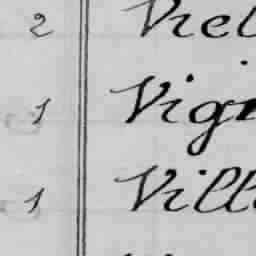 2 Viel
1 Vign
1 Ville